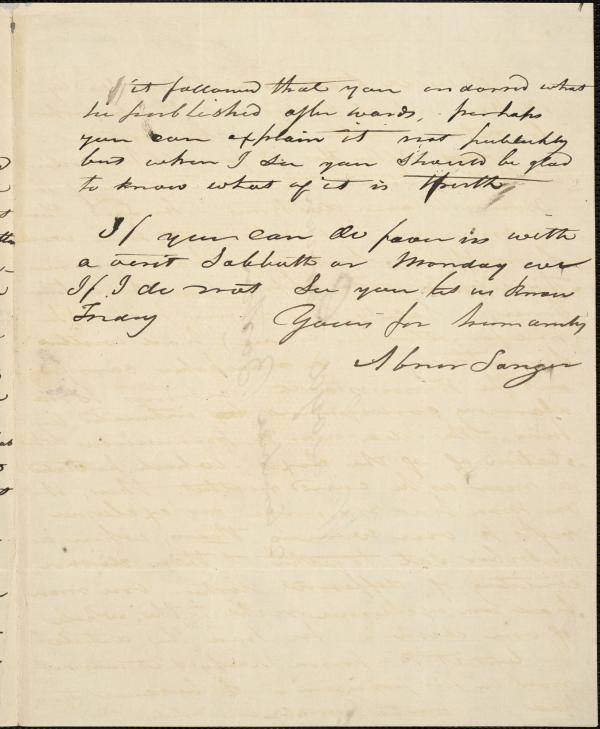 it followed that you endorsed what
he published after wards, perhaps
you can explain it not publickly
but when I see you should be glad
to know what of it is truth
If you can do favor us with
a visit Sabbath or Monday eve
If I do not see you let us know
Friday Yours for humanity
Abner Sanger